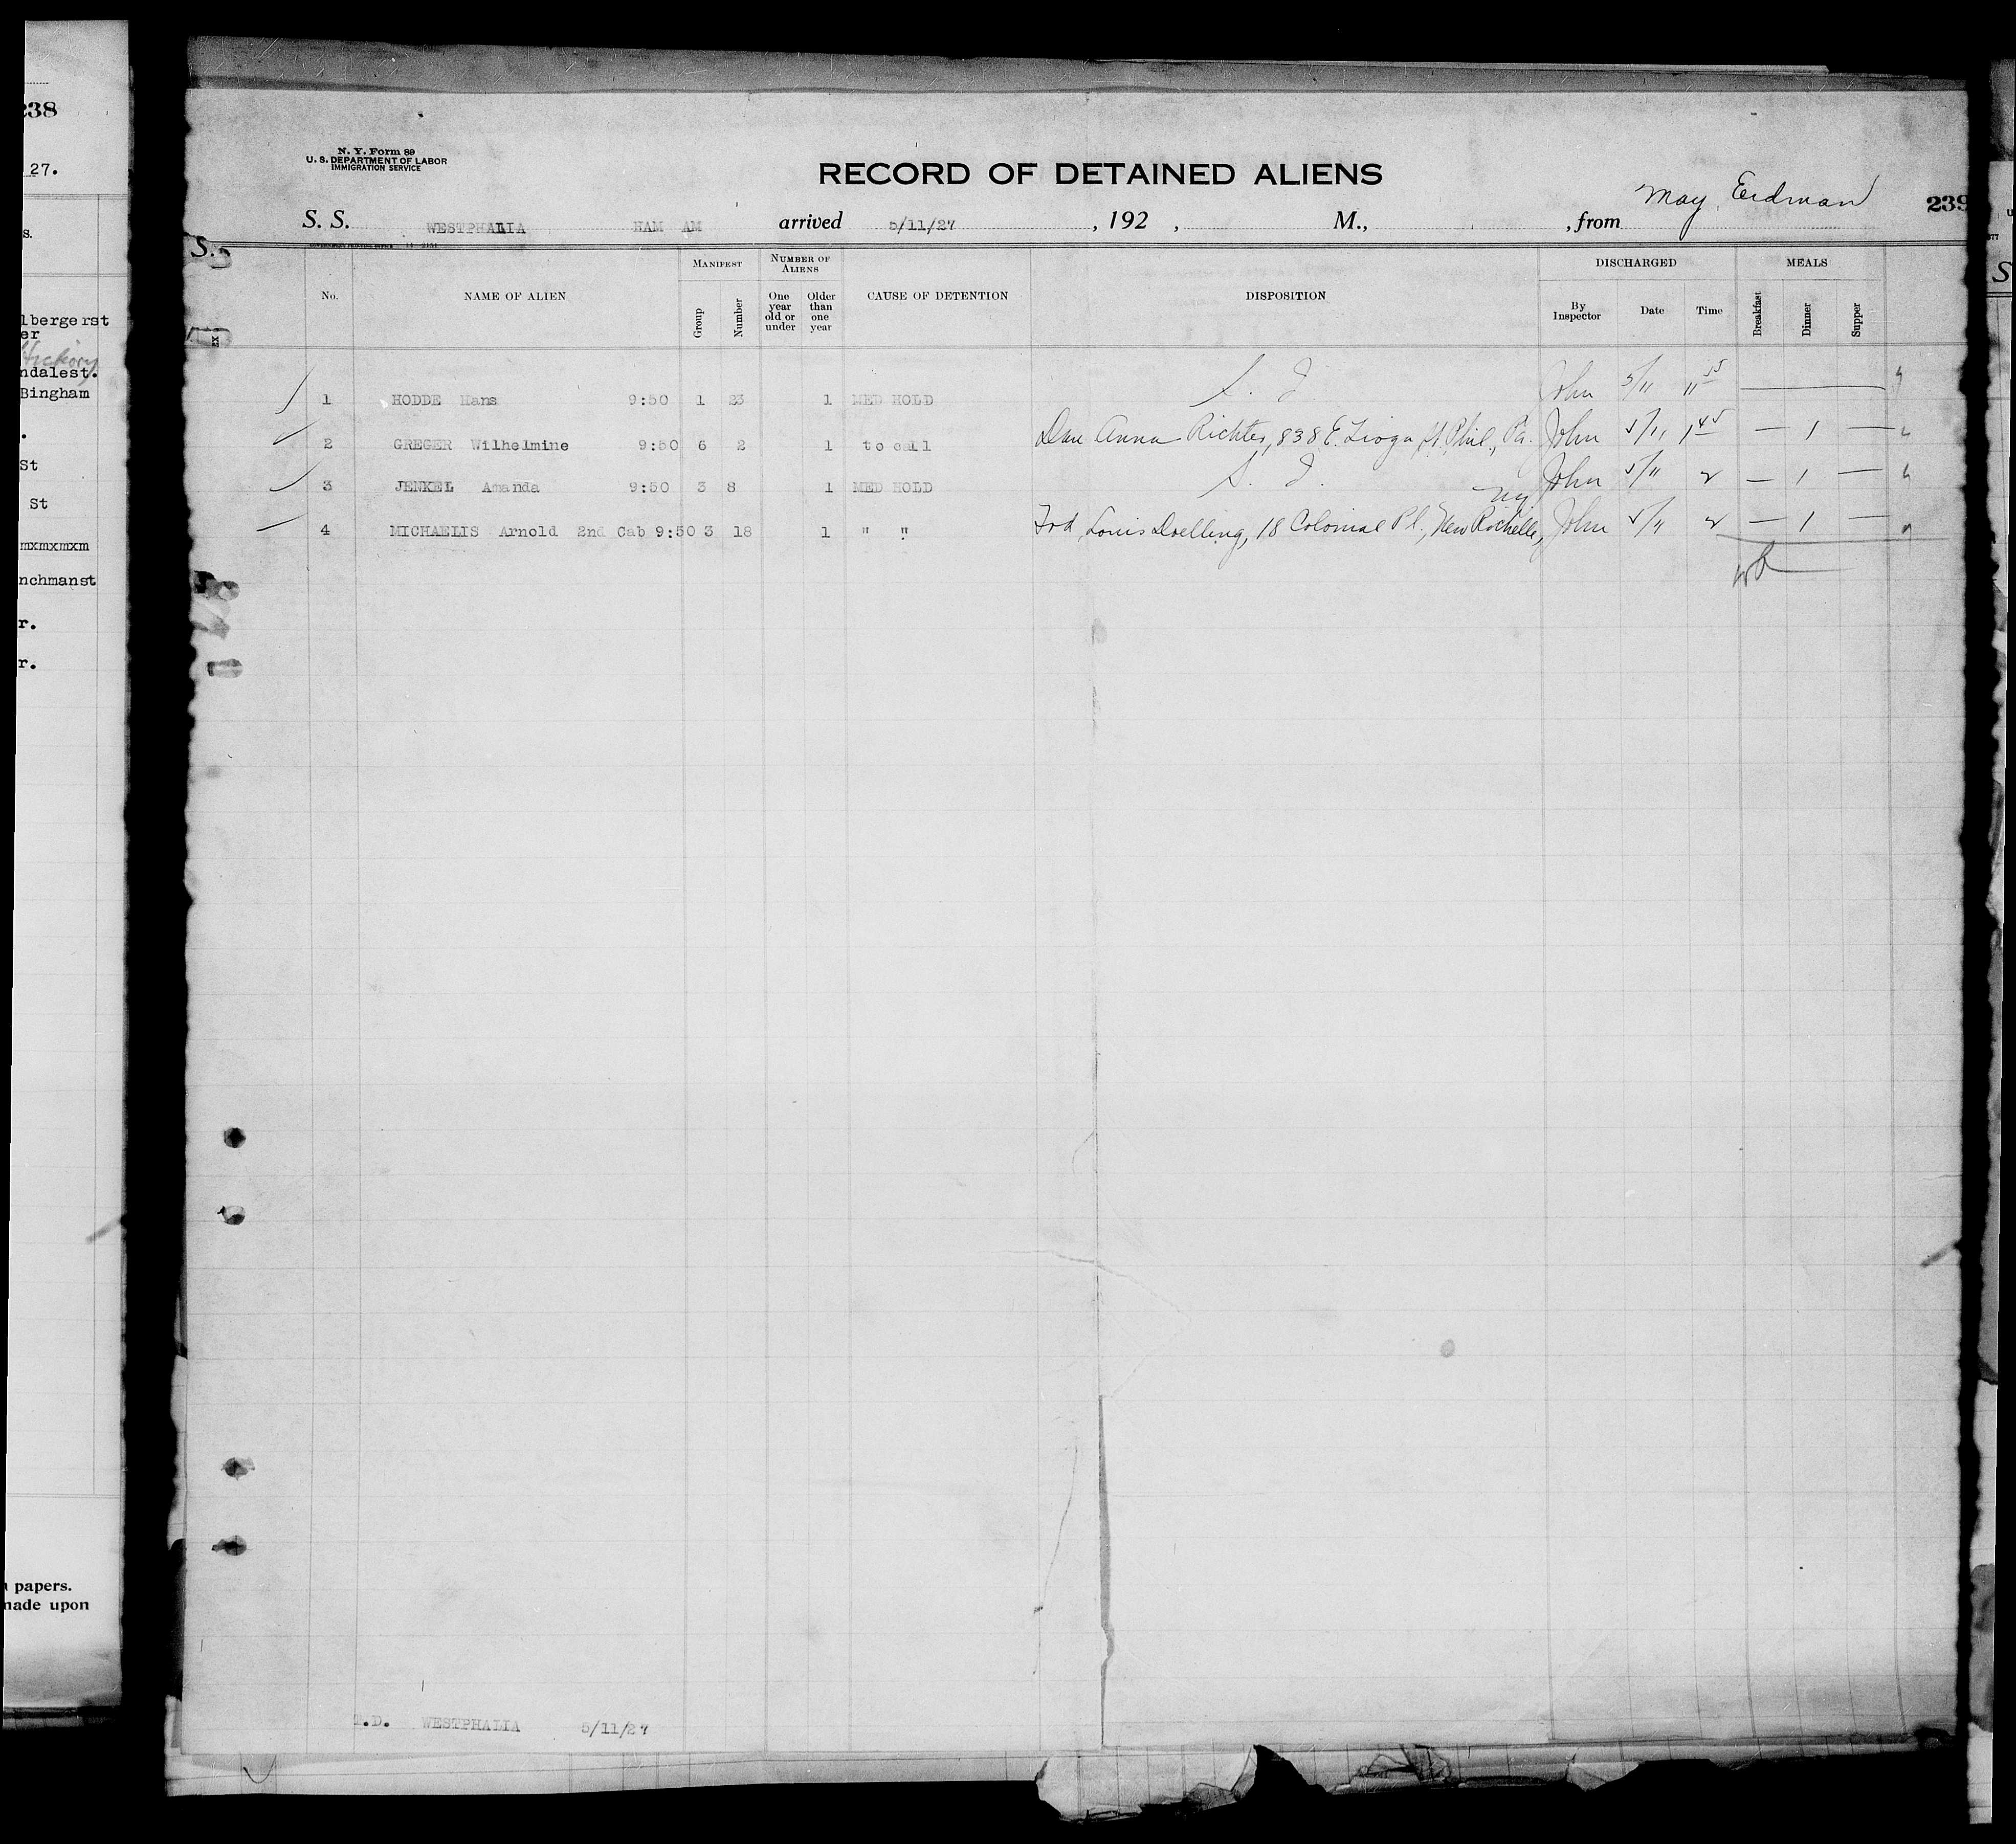 238
27.
s.
lbergerst
er
Hickory
ndalest.
Bingham
.
St
St
mxmxmxm
nchmanst
r.
r.
n papers.
made upon
N. Y. Form 89
U. S. DEPARTMENT OF LABOR
IMMIGRATION SERVICE
RECORD OF DETAINED ALIENS
May Erdman
239
S. S. WESTPHALIA HAM AM arrived 5/11/27 , 192 , M., , from
S.
MANIFEST NUMBER OF ALIENS DISCHARGED MEALS
No. NAME OF ALIEN Group Number One year old or under Older than one year CAUSE OF DETENTION DISPOSITION By Inspector Date Time Breakfast Dinner Supper
1 HODDE Hans 9:50 1 23 1 MED HOLD S. I. John 5/11 11 15
2 GREGER Wilhelmine 9:50 6 2 1 to call Dau Anna Richter, 838 E. Tioga St Phil., Pa. John 5/11 1 45 — 1 —
3 JENKEL Amanda 9:50 3 8 1 MED HOLD S. I. John 5/11 2 — 1 —
NY
4 MICHAELIS Arnold 2nd Cab 9:50 3 18 1 " " Frd Louis Doelling, 18 Colonial Pl., New Rochelle, John 5/11 2 — 1 —
T.D. WESTPHALIA 5/11/27
S